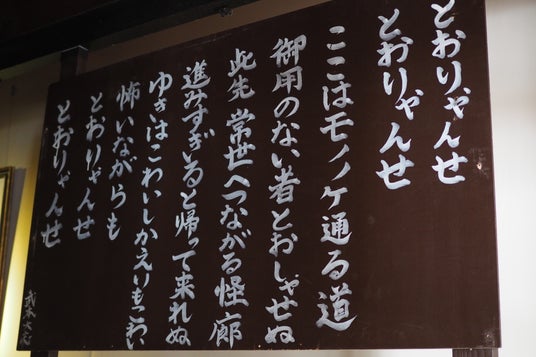 とおりゃんせ
とおりゃんせ
ここはモノノケ通る道
御用のない者とおしゃせぬ
此先 常世へつながる怪廊
進みすぎいると帰って来れぬ
ゆきはこわいしかえりもこわい
怖いながらも
とおりゃんせ
とおりゃんせ